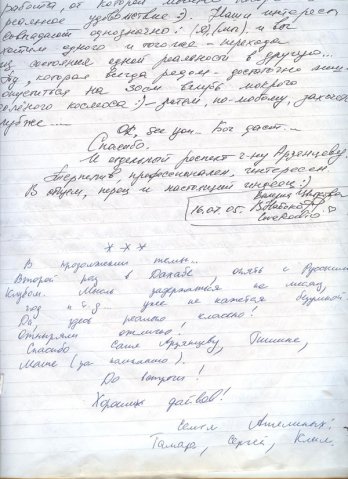 работы, от которой
реальное удовольствие :). Наши интересы
совпадают однозначно: , и вы
хотим одного и того же – перехода
из состояния одной реальности в другую...
которая всегда рядом – достаточно лишь
опуститься на 30см вглубь мокрого
солёного космоса :) – затем, по-моему,
глубже......
OK, see you... Бог даст....
Спасибо.
И отдельный респект г-ну Арзанцеву.
Терпелив, профессионален, интересен
В общем, перец и настоящий :)
16.07.05.
* * *
В продолжении темы...
Второй раз в Дахабе, опять с Русским
Клубом. Мысль задержаться на месяц,
год и т.д... уже не кажется безумной.
Да, здесь реально классно!
Отныряли отлично!
Спасибо Саше Арзанцеву, Тишине,
Маше (за компанию).
До встречи!
Хороших дайвов!
Семья
Тамара, Сергей, Клим.